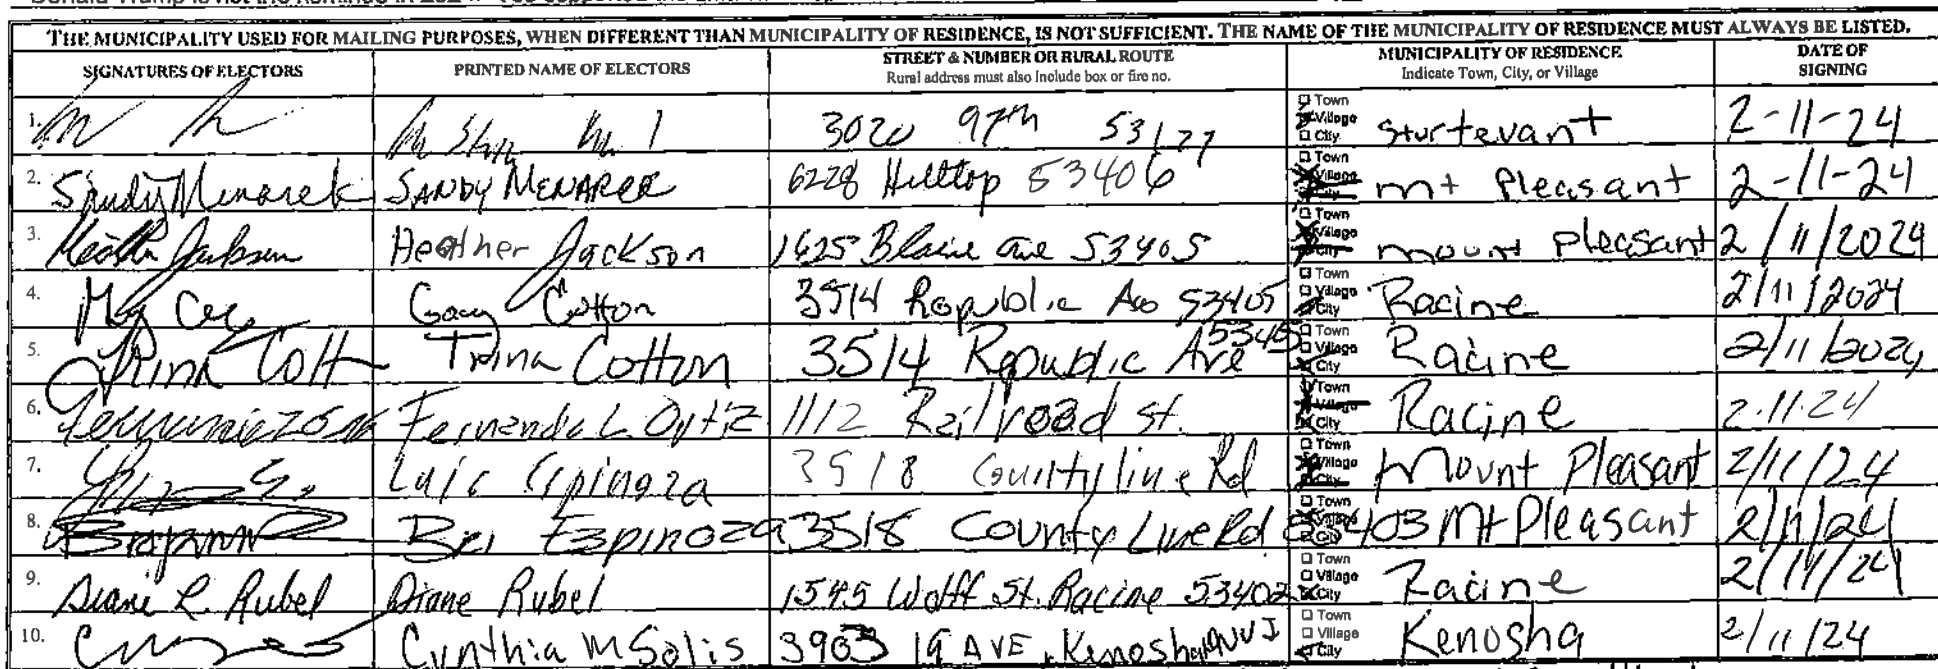 THE MUNICIPALITY USED FOR MAILING PURPOSES, WHEN DIFFERENT THAN MUNICIPALITY OF RESIDENCE, IS NOT SUFFICIENT. THE NAME OF THE MUNICIPALITY OF RESIDENCE MUST ALWAYS BE LISTED.
SIGNATURES OF ELECTORS PRINTED NAME OF ELECTORS STREET & NUMBER OR RURAL ROUTE Rural address must also include box or fire no. MUNICIPALITY OF RESIDENCE Indicate Town, City, or Village DATE OF SIGNING
1. 3020 97th 53177 Town Village City Sturtevant 2-11-24
2. Sandy Menarek SANDY MENAREK 6228 Hilltop 53406 Town Village City mt Pleasant 2-11-24
3. Heather Jackson Heather Jackson 1625 Blaine ave 53405 Town Village City mount pleasant 2/11/2024
4. Cotton 3514 Republic Ave 53405 Town Village City Racine 2/11/2024
5. Trina Cott Trina Cotton 3514 Republic Ave Town Village City Racine 2/11/2024
6. L. Ortiz 1112 Railroad St. Town Village City Racine 2.11.24
7. Luis Espinoza 3518 County line Rd Town Village City Mount Pleasant 2/11/24
8. Bri Espinoza 3518 County Line Rd 53403 Town Village City Mt Pleasant 2/11/24
9. Diane L. Rubel Diane Rubel 1545 Wolff St. Racine 53402 Town Village City Racine 2/11/24
10. Cynthia M Solis 3903 19 AVE Kenosha WI Town Village City Kenosha 2/11/24